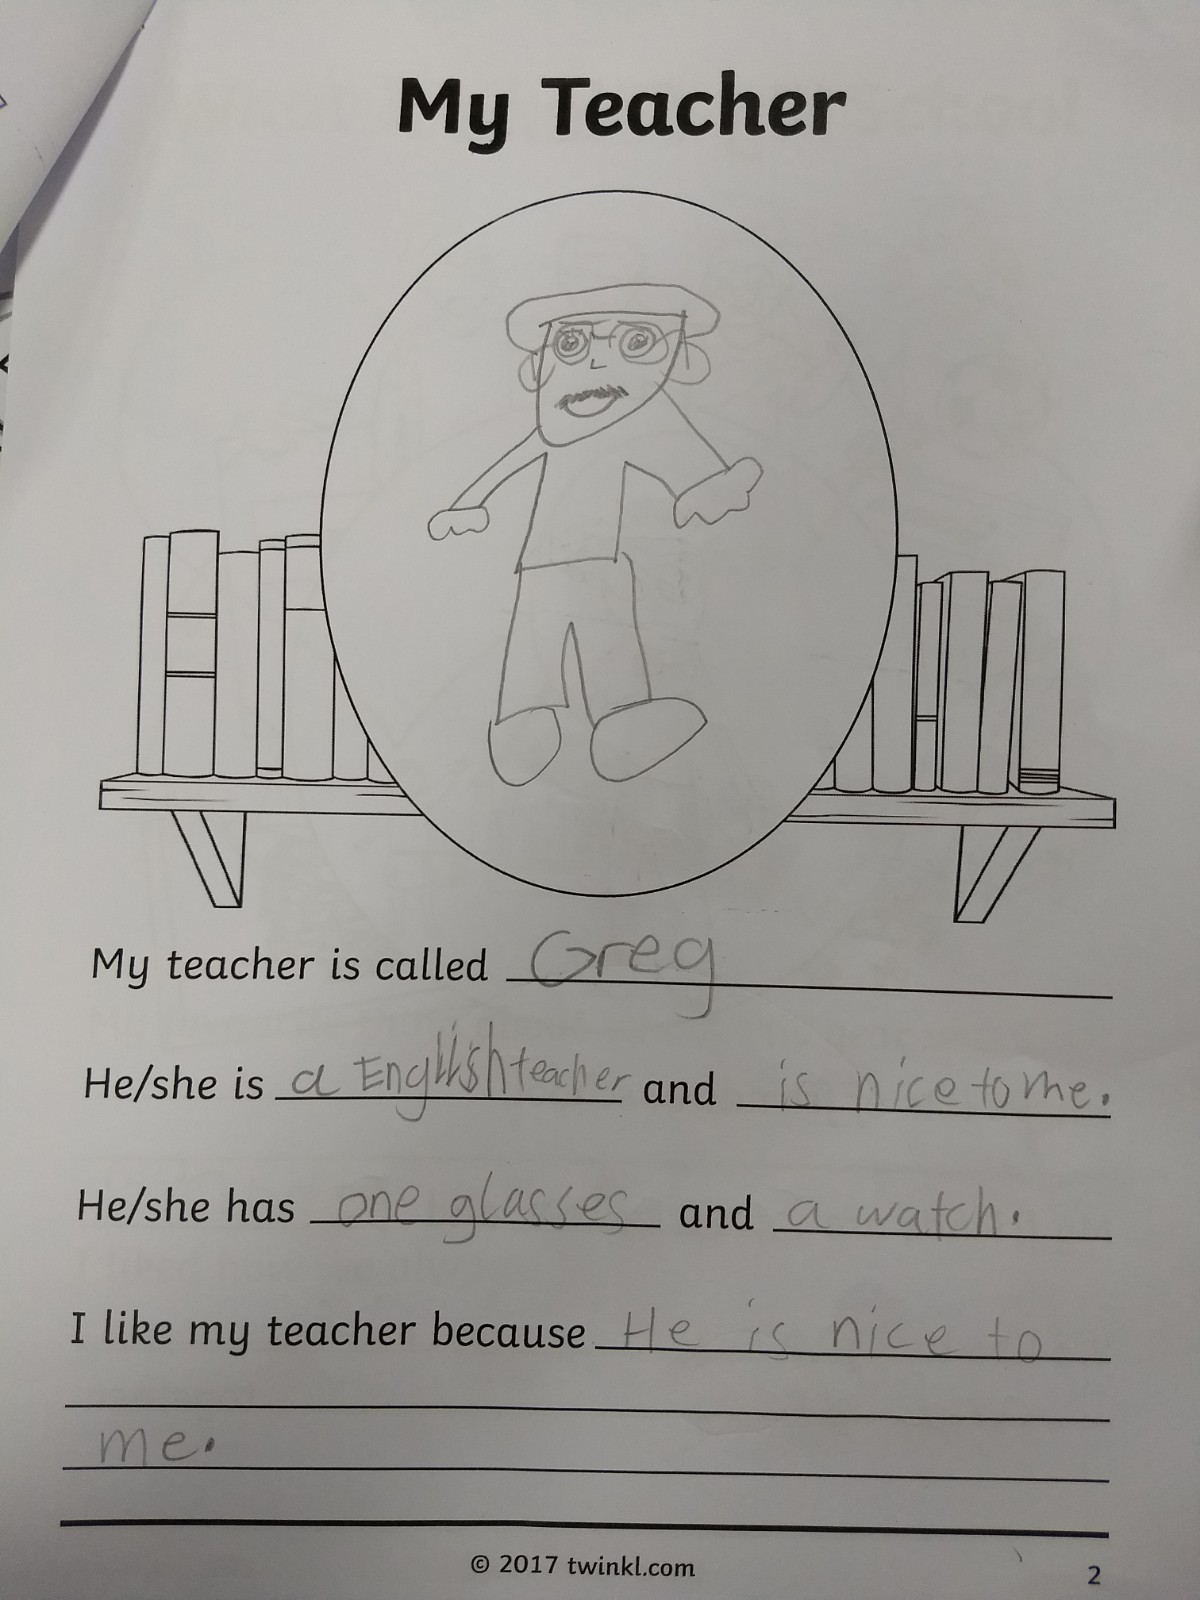 My Teacher
My teacher is called Greg
He/she is a English teacher and is nice to me.
He/she has one glasses and a watch.
I like my teacher because He is nice to
me.
© 2017 twinkl.com
2